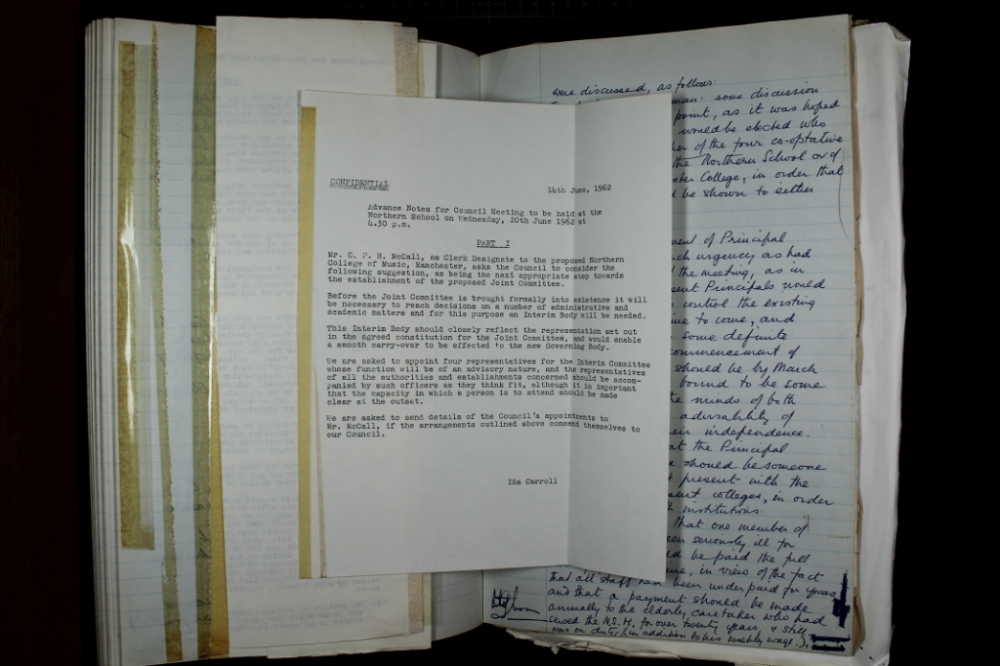 CONFIDENTIAL
14th June, 1962
Advance Notes for Council Meeting to be held at the
Northern School on Wednesday, 20th June 1962 at
4.30 p.m.
PART I
Mr. C. P. H. McCall, as Clerk Designate to the proposed Northern
College of Music, Manchester, asks the Council to consider the
following suggestion, as being the next appropriate step towards
the establishment of the proposed Joint Committee.
Before the Joint Committee is brought formally into existence it will
be necessary to reach decisions on a number of administrative and
academic matters and for this purpose an Interim Body will be needed.
This Interim Body should closely reflect the representation set out
in the agreed constitution for the Joint Committee, and would enable
a smooth carry-over to be effected to the new Governing Body.
We are asked to appoint four representatives for the Interim Committee
whose function will be of an advisory nature, and the representatives
of all the authorities and establishments concerned should be accom-
panied by such officers as they think fit, although it is important
that the capacity in which a person is to attend should be made
clear at the outset.
We are asked to send details of the Council's appointments to
Mr. McCall, if the arrangements outlined above commend themselves to
our Council.
Ida Carroll
were discussed, as follows:
man: some discussion
point, as it was hoped
would be elected who
of the four co-optative
the Northern School or of
College, in order that
be shown to either
of Principal
urgency as had
the meeting, as in
Principals would
control the existing
to come, and
some definite
commencement of
should be by March
bound to be some
minds of both
advisability of
independence.
at the Principal
should be someone
present with the
colleges, in order
institutions.
that one member of
seriously ill for
be paid the full
in view of the fact
that all staff had been underpaid for years
and that a payment should be made
annually to the elderly caretaker who had
served the N.S.M. for over twenty years, & still
was on duty (in addition to his weekly wage.)